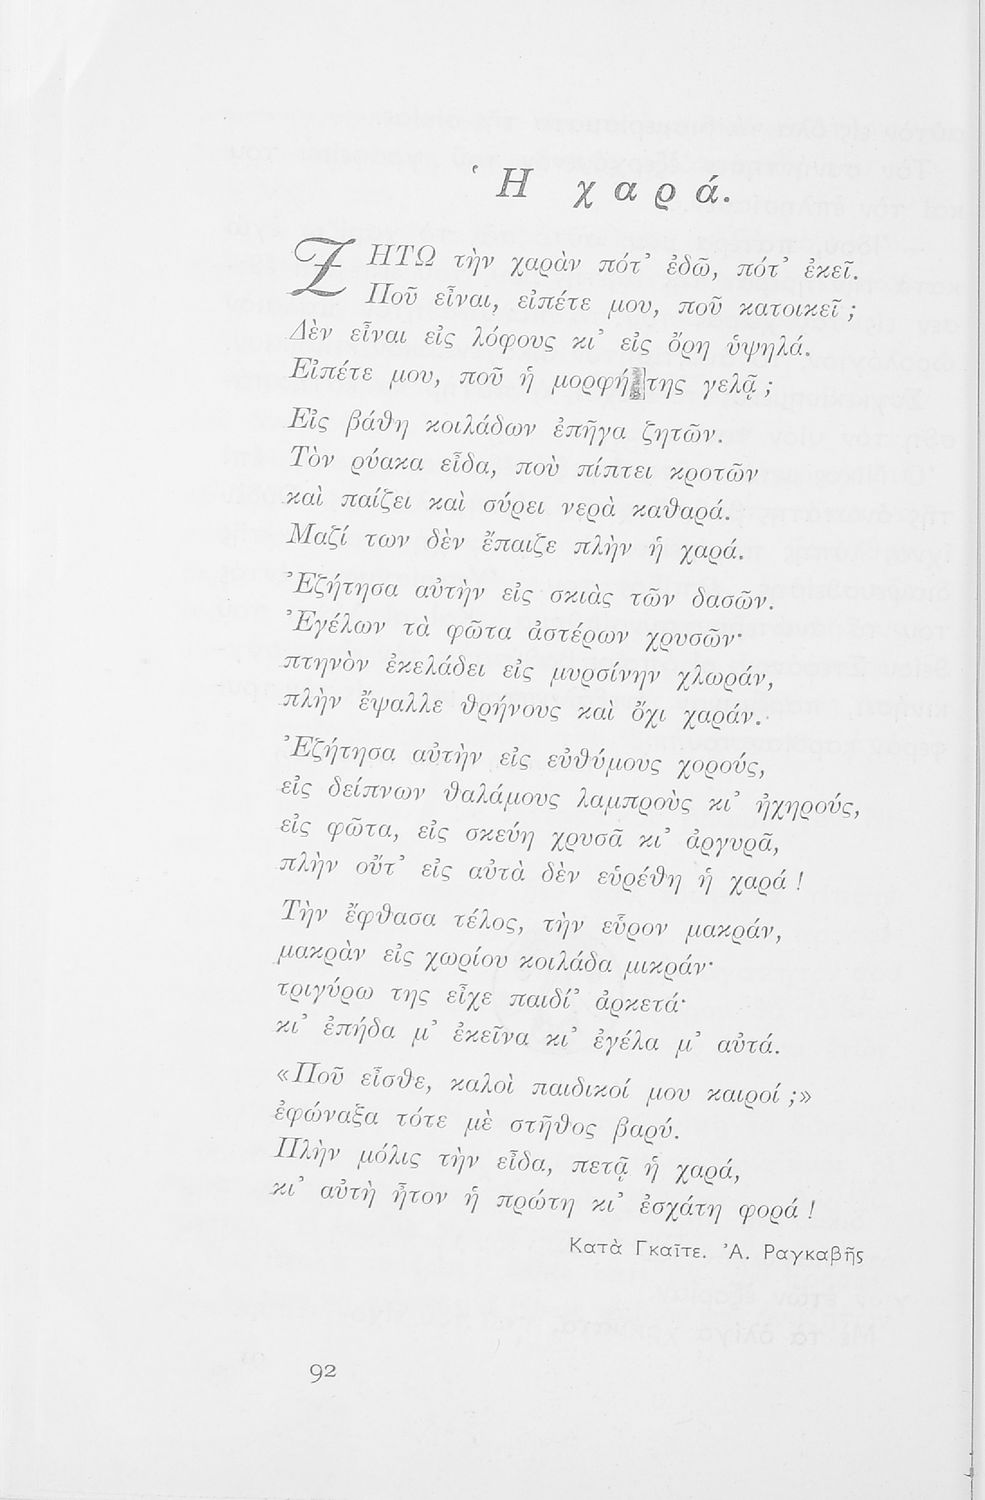 Ἡ χαρά.
ΖΗΤΩ τὴν χαρὰν πότ’ ἐδῶ, πότ’ ἐκεῖ.
Ποῦ εἶναι, εἰπέτε μου, ποῦ κατοικεῖ;
Δὲν εἶναι εἰς λόφους κι’ εἰς ὄρη ὑψηλά.
Εἰπέτε μου, ποῦ ἡ μορφή της γελᾷ;
Εἰς βάθη κοιλάδων ἐπῆγα ζητῶν.
Τὸν ρύακα εἶδα, ποὺ πίπτει κροτῶν
καὶ παίζει καὶ σύρει νερὰ καθαρά.
Μαζί των δὲν ἔπαιζε πλὴν ἡ χαρά.
Ἐζήτησα αὐτὴν εἰς σκιὰς τῶν δασῶν.
Ἐγέλων τὰ φῶτα ἀστέρων χρυσῶν·
πτηνὸν ἐκελάδει εἰς μυρσίνην χλωράν,
πλὴν ἔψαλλε θρήνους καὶ ὄχι χαράν.
Ἐζήτησα αὐτὴν εἰς εὐθύμους χορούς,
εἰς δείπνων θαλάμους λαμπροὺς κι’ ἠχηρούς,
εἰς φῶτα, εἰς σκεύη χρυσᾶ κι’ ἀργυρᾶ,
πλὴν οὔτ’ εἰς αὐτὰ δὲν εὑρέθη ἡ χαρά!
Τὴν ἔφθασα τέλος, τὴν εὗρον μακράν,
μακρὰν εἰς χωρίου κοιλάδα μικράν·
τριγύρω της εἶχε παιδί’ ἀρκετά·
κι’ ἐπήδα μ’ ἐκεῖνα κι’ ἐγέλα μ’ αὐτά.
«Ποῦ εἶσθε, καλοὶ παιδικοί μου καιροί;»
ἐφώναξα τότε μὲ στῆθος βαρύ.
Πλὴν μόλις τὴν εἶδα, πετᾷ ἡ χαρά,
κι’ αὐτὴ ἦτον ἡ πρώτη κι’ ἐσχάτη φορά!
Κατὰ Γκαῖτε. Ἀ. Ραγκαβῆς
92